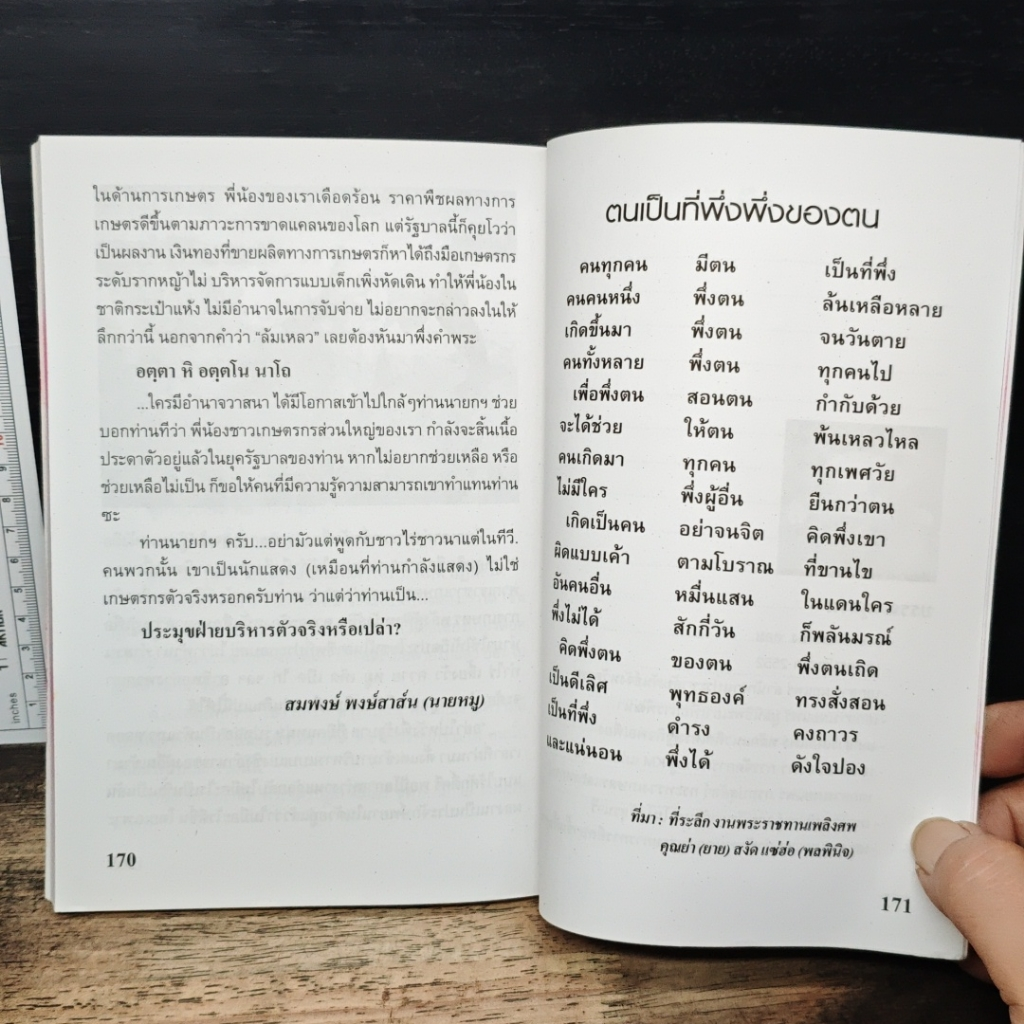 ในด้านการเกษตร พี่น้องของเราเดือดร้อน ราคาพืชผลทางการ
เกษตรดีขึ้นตามภาวะการขาดแคลนของโลก แต่รัฐบาลนี้ก็คุยโวว่า
เป็นผลงาน เงินทองที่ขายผลิตทางการเกษตรก็หาได้ถึงมือเกษตรกร
ระดับรากหญ้าไม่ บริหารจัดการแบบเด็กเพิ่งหัดเดิน ทำให้พี่น้องใน
ชาติกระเป๋าแห้ง ไม่มีอำนาจในการจับจ่าย ไม่อยากจะกล่าวลงในให้
ลึกกว่านี้ นอกจากคำว่า "ล้มเหลว" เลยต้องหันมาพึ่งคำพระ
อตฺตา หิ อตฺตโน นาโถ
...ใครมีอำนาจวาสนา ได้มีโอกาสเข้าไปใกล้ๆท่านนายกฯ ช่วย
บอกท่านทีว่า พี่น้องชาวเกษตรกรส่วนใหญ่ของเรา กำลังจะสิ้นเนื้อ
ประดาตัวอยู่แล้วในยุครัฐบาลของท่าน หากไม่อยากช่วยเหลือ หรือ
ช่วยเหลือไม่เป็น ก็ขอให้คนที่มีความรู้ความสามารถเขาทำแทนท่าน
ซะ
ท่านนายกฯ ครับ...อย่ามัวแต่พูดกับชาวไร่ชาวนาแต่ในทีวี.
คนพวกนั้น เขาเป็นนักแสดง (เหมือนที่ท่านกำลังแสดง) ไม่ใช่
เกษตรกรตัวจริงหรอกครับท่าน ว่าแต่ว่าท่านเป็น...
ประมุขฝ่ายบริหารตัวจริงหรือเปล่า?
สมพงษ์ พงษ์สาส์น (นายหมู)
170
ตนเป็นที่พึ่งพึ่งของตน
คนทุกคน มีตน เป็นที่พึ่ง
คนคนหนึ่ง พึ่งตน ล้นเหลือหลาย
เกิดขึ้นมา พึ่งตน จนวันตาย
คนทั้งหลาย พึ่งตน ทุกคนไป
เพื่อพึ่งตน สอนตน กำกับด้วย
จะได้ช่วย ให้ตน พ้นเหลวไหล
คนเกิดมา ทุกคน ทุกเพศวัย
ไม่มีใคร พึ่งผู้อื่น ยืนกว่าตน
เกิดเป็นคน อย่าจนจิต คิดพึ่งเขา
ผิดแบบเค้า ตามโบราณ ที่ขานไข
อันคนอื่น หมื่นแสน ในแดนใคร
พึ่งไม่ได้ สักกี่วัน ก็พลันมรณ์
คิดพึ่งตน ของตน พึ่งตนเถิด
เป็นดีเลิศ พุทธองค์ ทรงสั่งสอน
เป็นที่พึ่ง ดำรง คงถาวร
และแน่นอน พึ่งได้ ดังใจปอง
ที่มา : ที่ระลึก งานพระราชทานเพลิงศพ
คุณย่า (ยาย) สงัด แซ่ฮ่อ (พลพินิจ)
171
inches